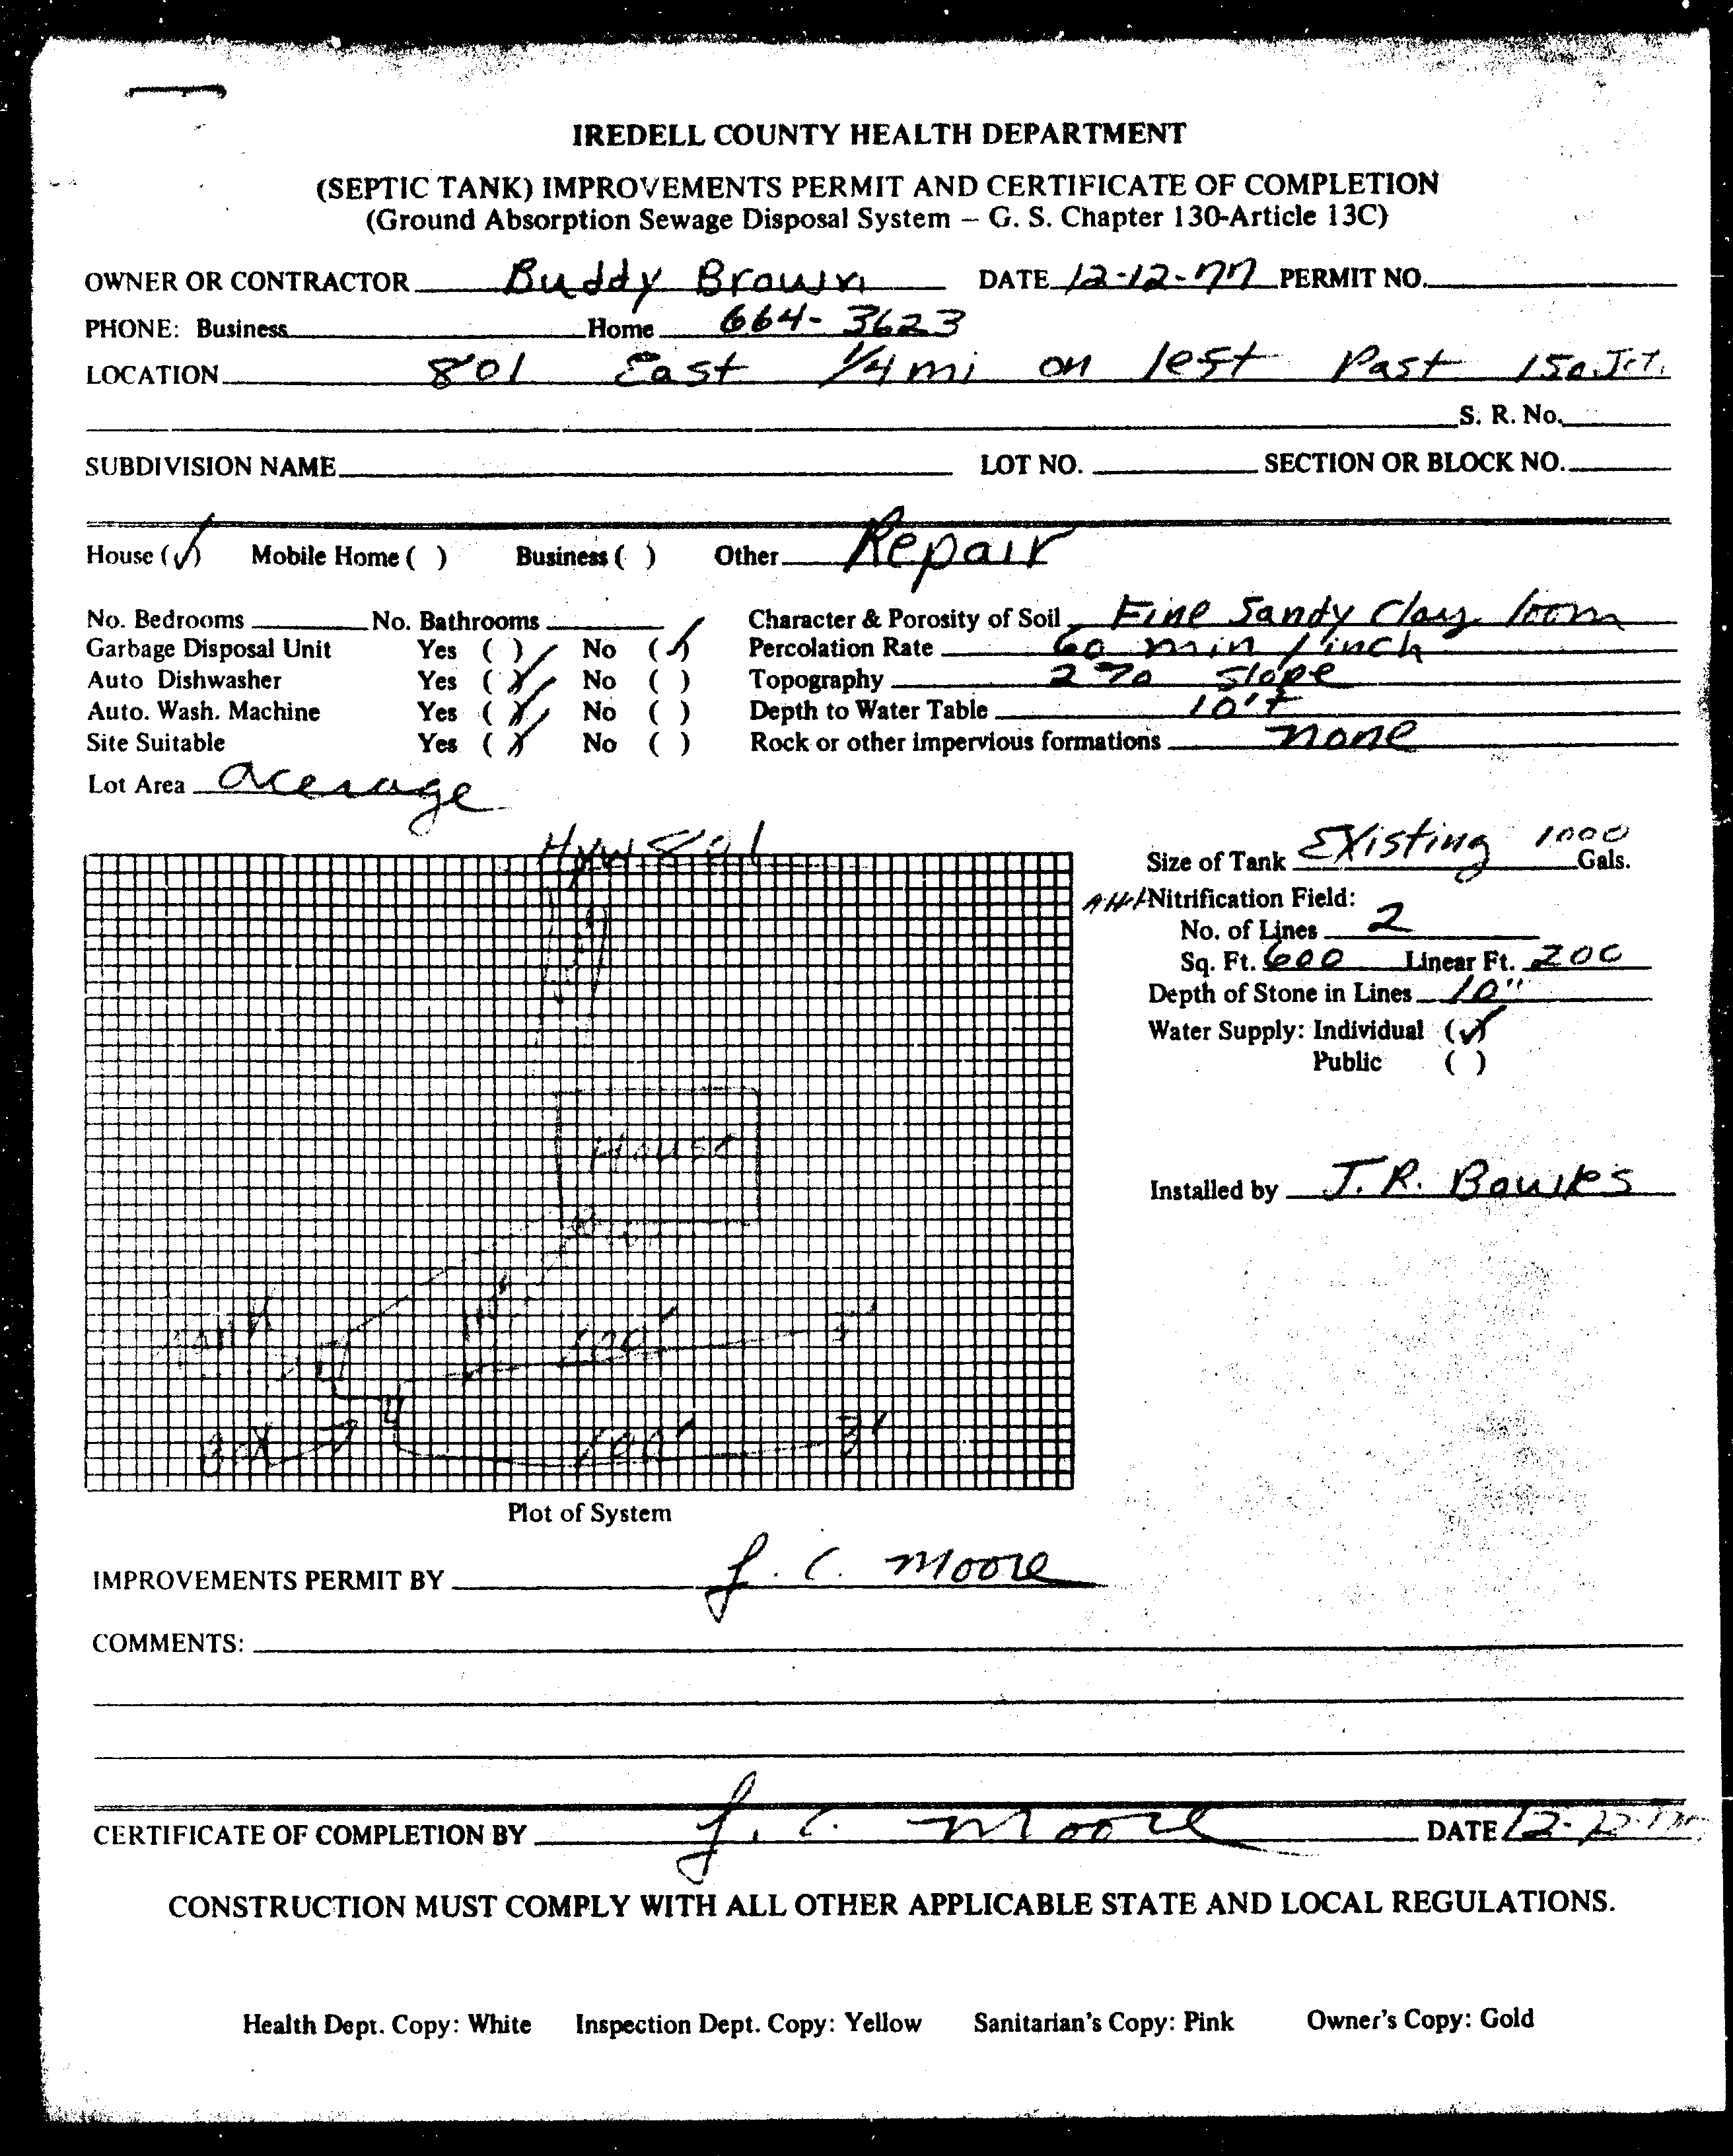 IREDELL COUNTY HEALTH DEPARTMENT
(SEPTIC TANK) IMPROVEMENTS PERMIT AND CERTIFICATE OF COMPLETION
(Ground Absorption Sewage Disposal System – G. S. Chapter 130-Article 13C)
OWNER OR CONTRACTOR Buddy Brown DATE 12-12-77 PERMIT NO.
PHONE: Business Home 664-3623
LOCATION 801 East 1/4 mi on left Past 150 Jct.
S. R. No.
SUBDIVISION NAME LOT NO. SECTION OR BLOCK NO.
House (✓) Mobile Home ( ) Business ( ) Other Repair
No. Bedrooms No. Bathrooms Character & Porosity of Soil Fine Sandy Clay loom
Garbage Disposal Unit Yes ( ) No (✓) Percolation Rate 60 min / inch
Auto Dishwasher Yes (✓) No ( ) Topography 2% Slope
Auto. Wash. Machine Yes (✓) No ( ) Depth to Water Table 10'+
Site Suitable Yes (✓) No ( ) Rock or other impervious formations none
Lot Area acerage
Hyw 801
Size of Tank Existing 1000 Gals.
Nitrification Field:
No. of Lines 2
Sq. Ft. 600 Linear Ft. 200
Depth of Stone in Lines 10"
Water Supply: Individual (✓)
Public ( )
House
Installed by J. R. Bowles
Tank
100'
3'
Box
100'
3'
Plot of System
IMPROVEMENTS PERMIT BY J. C. Moore
COMMENTS:
CERTIFICATE OF COMPLETION BY J. C. Moore DATE 12-22-77
CONSTRUCTION MUST COMPLY WITH ALL OTHER APPLICABLE STATE AND LOCAL REGULATIONS.
Health Dept. Copy: White Inspection Dept. Copy: Yellow Sanitarian's Copy: Pink Owner's Copy: Gold